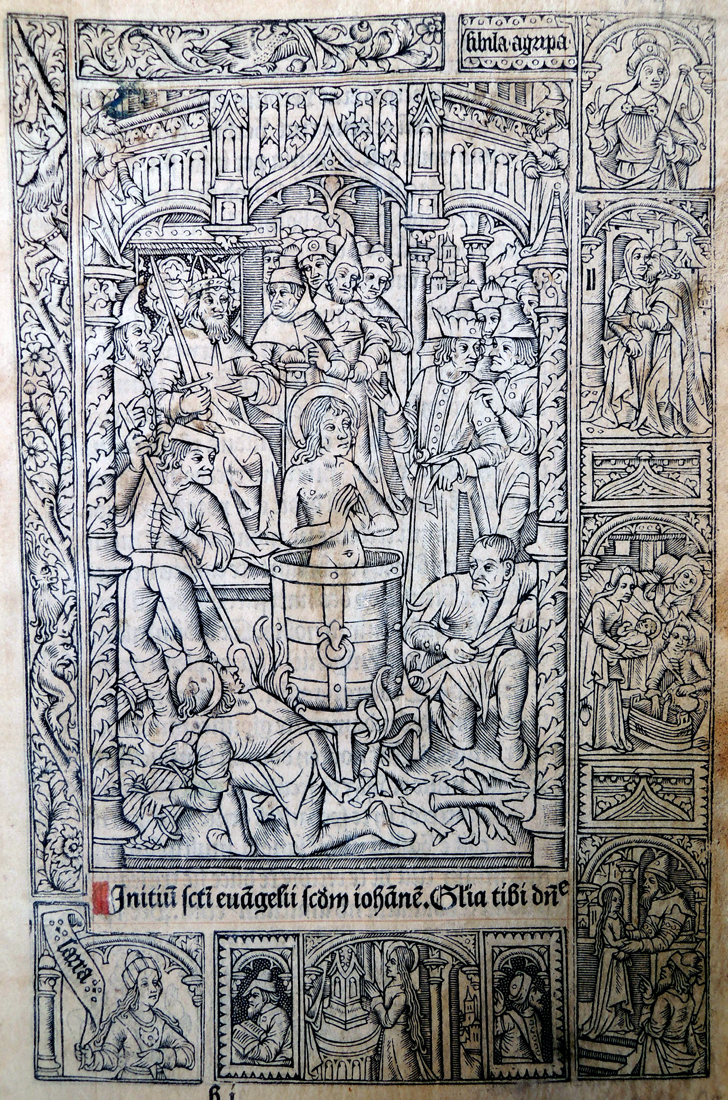 sibila agripa
Initiū sctī euāgelii scdm iohānē. Glīa tibi dn̄e
b i